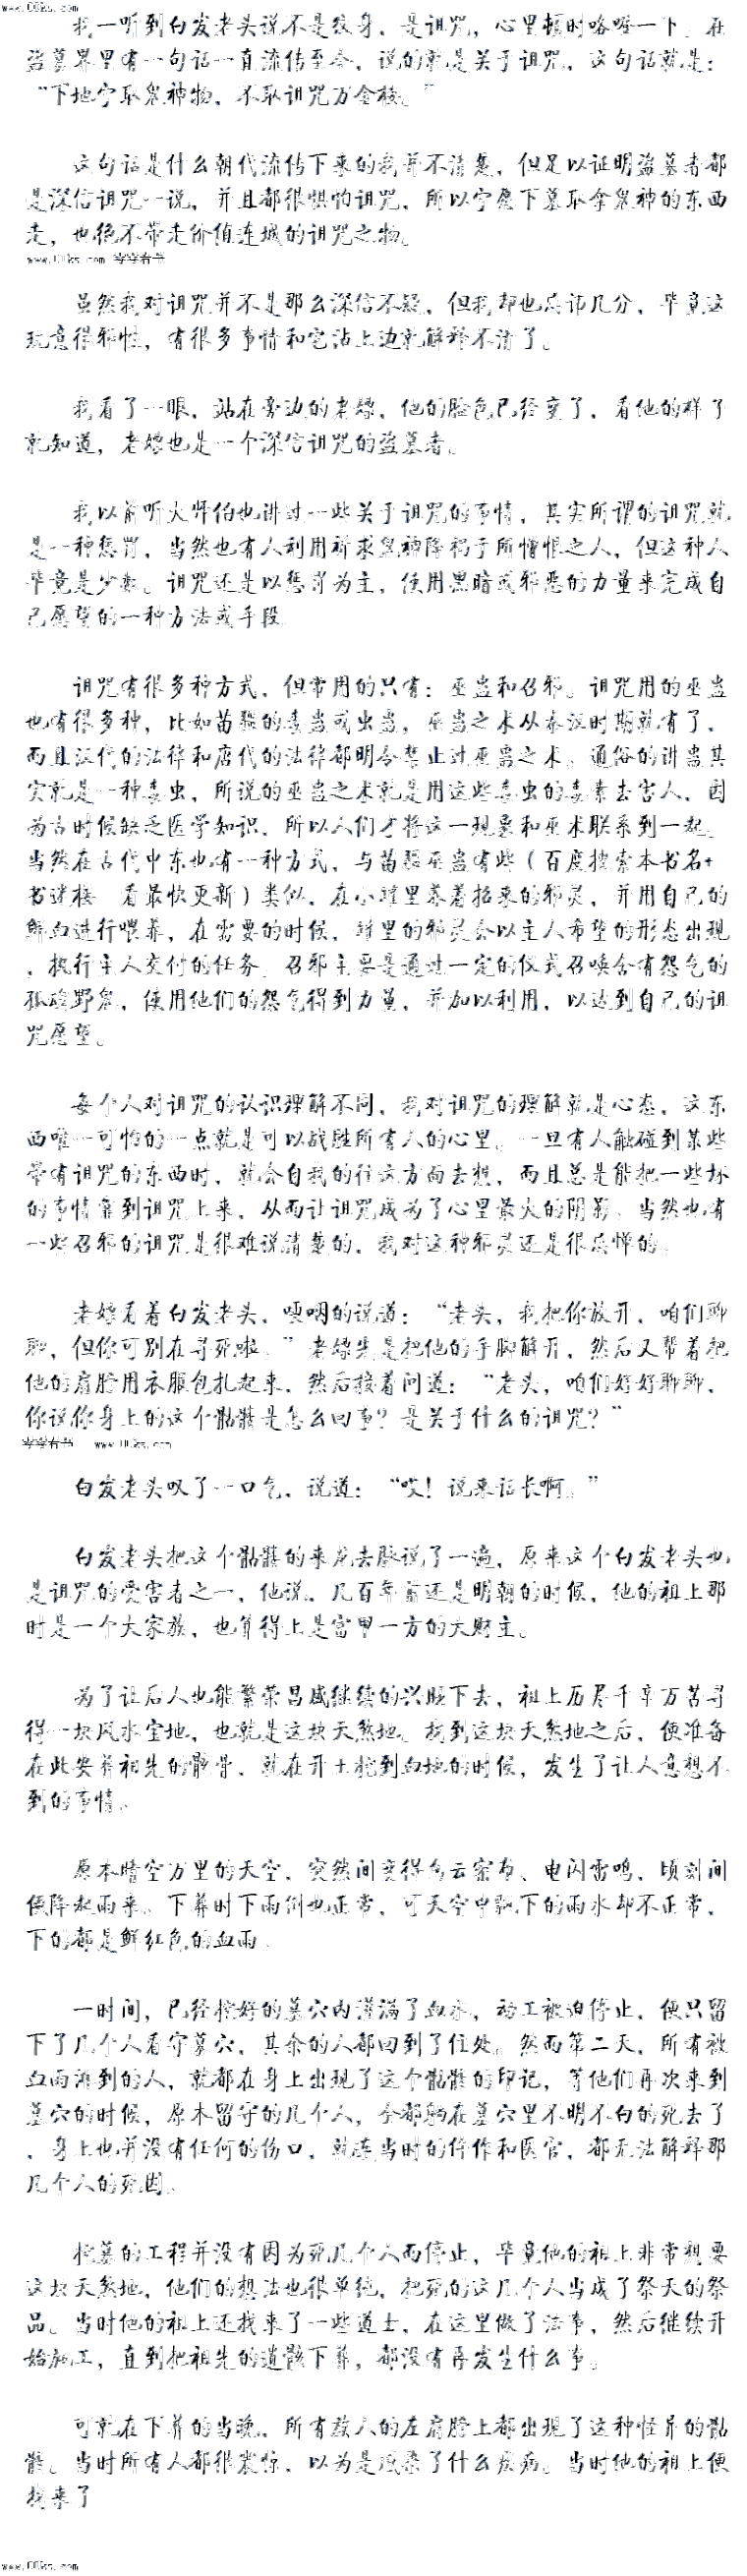 www.00ks.com
我一听到白发老头说不是纹身，是诅咒，心里顿时咯噔一下，在
盗墓界里有一句话一直流传至今，说的就是关于诅咒，这句话就是：
“下地宁取鬼神物，不取诅咒万金棱。”
这句话是什么朝代流传下来的我并不清楚，但足以证明盗墓者都
是深信诅咒一说，并且都很惧怕诅咒，所以宁愿下墓取拿鬼神的东西
走，也绝不带走价值连城的诅咒之物。
www.00ks.com 零零看书
虽然我对诅咒并不是那么深信不疑，但我却也忌讳几分，毕竟这
玩意很邪性，有很多事情和它沾上边就解释不清了。
我看了一眼，站在旁边的老嫖，他的脸色已经变了，看他的样子
就知道，老嫖也是一个深信诅咒的盗墓者。
我以前听大师伯也讲过一些关于诅咒的事情，其实所谓的诅咒就
是一种惩罚，当然也有人利用祈求鬼神降祸于所憎恨之人，但这种人
毕竟是少数。诅咒还是以惩罚为主，使用黑暗或邪恶的力量来完成自
己愿望的一种方法或手段。
诅咒有很多种方式，但常用的只有：巫蛊和召邪。诅咒用的巫蛊
也有很多种，比如苗疆的毒蛊或虫蛊，巫蛊之术从秦汉时期就有了，
而且汉代的法律和唐代的法律都明令禁止过巫蛊之术。通俗的讲蛊其
实就是一种毒虫，所说的巫蛊之术就是用这些毒虫的毒素去害人，因
为古时候缺乏医学知识，所以人们才将这一现象和巫术联系到一起。
当然在古代中东也有一种方式，与苗疆巫蛊有些（百度搜索本书名+
书迷楼 看最快更新）类似，在小罐里养着招来的邪灵，并用自己的
鲜血进行喂养，在需要的时候，罐里的邪灵会以主人希望的形态出现
，执行主人交付的任务。召邪主要是通过一定的仪式召唤含有怨气的
孤魂野鬼，使用他们的怨气得到力量，并加以利用，以达到自己的诅
咒愿望。
每个人对诅咒的认识理解不同，我对诅咒的理解就是心态，这东
西唯一可怕的一点就是可以战胜所有人的心里。一旦有人触碰到某些
带有诅咒的东西时，就会自我的往这方面去想，而且总是能把一些坏
的事情靠到诅咒上来，从而让诅咒成为了心里最大的阴影。当然也有
一些召邪的诅咒是很难说清楚的，我对这种邪灵还是很忌惮的。
老嫖看着白发老头，哽咽的说道：“老头，我把你放开，咱们聊
聊，但你可别在寻死啦。”老嫖先是把他的手脚解开，然后又帮着把
他的肩膀用衣服包扎起来，然后接着问道：“老头，咱们好好聊聊，
你说你身上的这个骷髅是怎么回事？是关于什么的诅咒？”
零零看书 www.00ks.com
白发老头叹了一口气，说道：“哎！说来话长啊。”
白发老头把这个骷髅的来龙去脉说了一遍，原来这个白发老头也
是诅咒的受害者之一，他说，几百年前还是明朝的时候，他的祖上那
时是一个大家族，也算得上是富甲一方的大财主。
为了让后人也能繁荣昌盛继续的兴旺下去，祖上历尽千辛万苦寻
得一块风水宝地，也就是这块天煞地。找到这块天煞地之后，便准备
在此安葬祖先的骸骨，就在开土挖到血地的时候，发生了让人意想不
到的事情。
原本晴空万里的天空，突然间变得乌云密布、电闪雷鸣，顷刻间
便降起雨来。下葬时下雨倒也正常，可天空中飘下的雨水却不正常，
下的都是鲜红色的血雨。
一时间，已经挖好的墓穴内灌满了血水，动工被迫停止，便只留
下了几个人看守墓穴，其余的人都回到了住处。然而第二天，所有被
血雨淋到的人，就都在身上出现了这个骷髅的印记，等他们再次来到
墓穴的时候，原本留守的几个人，全都躺在墓穴里不明不白的死去了
，身上也并没有任何的伤口，就连当时的仵作和医官，都无法解释那
几个人的死因。
挖墓的工程并没有因为死几个人而停止，毕竟他的祖上非常想要
这块天煞地，他们的想法也很单纯，把死的这几个人当成了祭天的祭
品。当时他的祖上还找来了一些道士，在这里做了法事，然后继续开
始施工，直到把祖先的遗骸下葬，都没有再发生什么事。
可就在下葬的当晚，所有族人的左肩膀上都出现了这种怪异的骷
髅。当时所有人都很震惊，以为是感染了什么疾病。当时他的祖上便
找来了
www.00ks.com